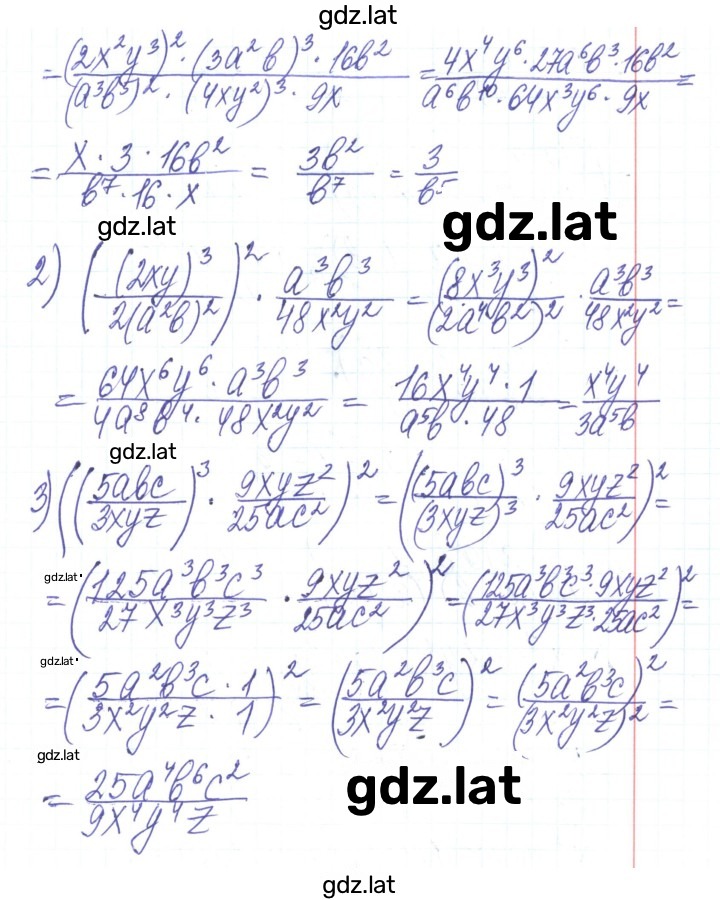 gdz.lat
= (2x²y³)² · (3a²b)³ · 16b² / (a³b⁵)² · (4xy²)³ · 9x = 4x⁴y⁶ · 27a⁶b³ · 16b² / a⁶b¹⁰ · 64x³y⁶ · 9x =
= x · 3 · 16b² / b⁷ · 16 · x = 3b² / b⁷ = 3 / b⁵
gdz.lat
gdz.lat
2) ((2xy)³ / 2(a²b)²)² · a³b³ / 48x²y² = (8x³y³)² / (2a⁴b²)² · a³b³ / 48x²y² =
= 64x⁶y⁶ · a³b³ / 4a⁸b⁴ · 48x²y² = 16x⁴y⁴ · 1 / a⁵b · 48 = x⁴y⁴ / 3a⁵b
gdz.lat
3) ((5abc / 3xyz)³ · 9xyz² / 25ac²)² = ((5abc)³ / (3xyz)³ · 9xyz² / 25ac²)² =
gdz.lat
= (125a³b³c³ / 27x³y³z³ · 9xyz² / 25ac²)² = (125a³b³c³ · 9xyz² / 27x³y³z³ · 25ac²)² =
gdz.lat
= (5a²b³c · 1 / 3x²y²z · 1)² = (5a²b³c / 3x²y²z)² = (5a²b³c)² / (3x²y²z)² =
gdz.lat
= 25a⁴b⁶c² / 9x⁴y⁴z
gdz.lat
gdz.lat